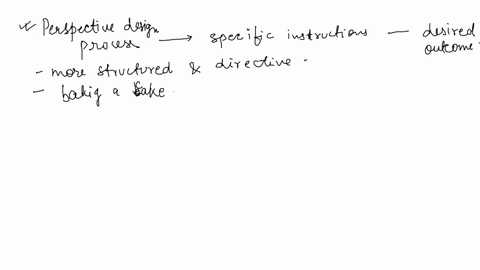 * Perspective design process → specific instructions — desired outcome.
- more structured & directive.
- bakig a bake.